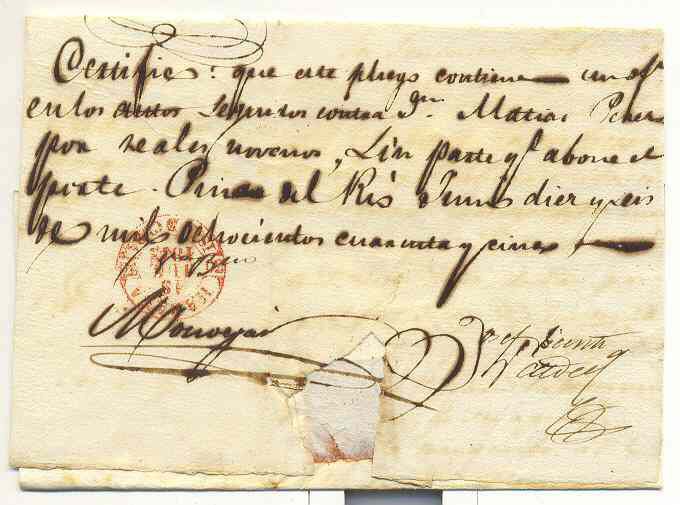 Certifico: que este pliego contiene un of.
en los autos seguidos contra Dn. Matias Perez
por reales novenos, sin parte qe. abone el
porte. Pinar del Rio Junio diez y seis
de mil ochocientos cuarenta y cinco
Vto. Bno.